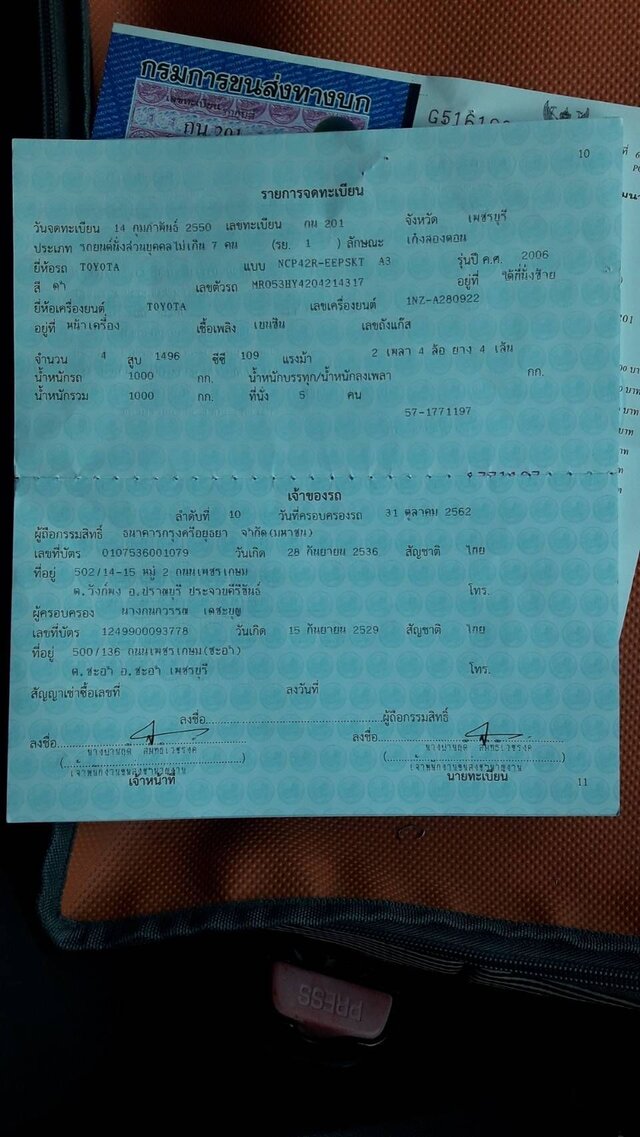 กรมการขนส่งทางบก
กน 201
10
รายการจดทะเบียน
วันจดทะเบียน 14 กุมภาพันธ์ 2550 เลขทะเบียน กน 201 จังหวัด เพชรบุรี
ประเภท รถยนต์นั่งส่วนบุคคลไม่เกิน 7 คน (รย. 1 ) ลักษณะ เก๋งสองตอน
ยี่ห้อรถ TOYOTA แบบ NCP42R-EEPSKT A3 รุ่นปี ค.ศ. 2006
สี ดำ เลขตัวรถ MR053HY4204214317 อยู่ที่ ใต้ที่นั่งซ้าย
ยี่ห้อเครื่องยนต์ TOYOTA เลขเครื่องยนต์ 1NZ-A280922
อยู่ที่ หน้าเครื่อง เชื้อเพลิง เบนซิน เลขถังแก๊ส
จำนวน 4 สูบ 1496 ซีซี 109 แรงม้า 2 เพลา 4 ล้อ ยาง 4 เส้น
น้ำหนักรถ 1000 กก. น้ำหนักบรรทุก/น้ำหนักลงเพลา กก.
น้ำหนักรวม 1000 กก. ที่นั่ง 5 คน
57-1771197
เจ้าของรถ
ลำดับที่ 10 วันที่ครอบครองรถ 31 ตุลาคม 2562
ผู้ถือกรรมสิทธิ์ ธนาคารกรุงศรีอยุธยา จำกัด(มหาชน)
เลขที่บัตร 0107536001079 วันเกิด 28 กันยายน 2536 สัญชาติ ไทย
ที่อยู่ 502/14-15 หมู่ 2 ถนนเพชรเกษม
ต.วังก์พง อ.ปราณบุรี ประจวบคีรีขันธ์ โทร.
ผู้ครอบครอง นางกนกวรรณ เดชะบุญ
เลขที่บัตร 1249900093778 วันเกิด 15 กันยายน 2529 สัญชาติ ไทย
ที่อยู่ 500/136 ถนนเพชรเกษม(ชะอำ)
ต.ชะอำ อ.ชะอำ เพชรบุรี โทร.
สัญญาเช่าซื้อเลขที่ ลงวันที่
ลงชื่อ ผู้ถือกรรมสิทธิ์
ลงชื่อ ลงชื่อ
เจ้าพนักงานขนส่งชำนาญงาน เจ้าพนักงานขนส่งชำนาญงาน
เจ้าหน้าที่ นายทะเบียน
11
PRESS